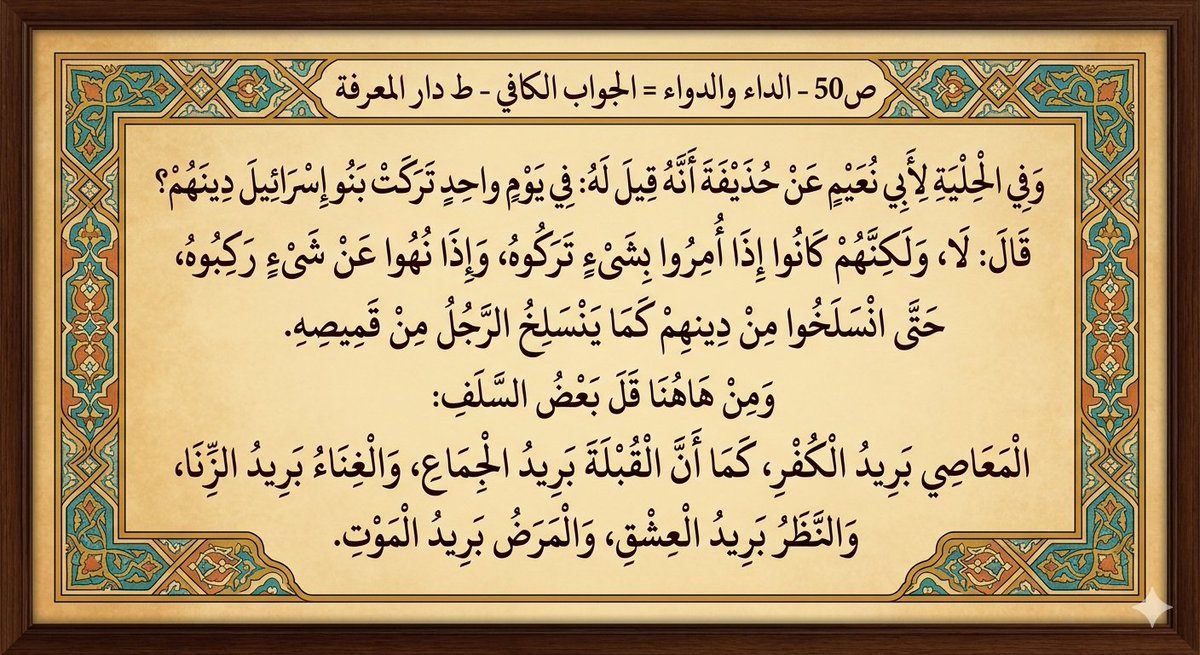 ص50 - الداء والدواء = الجواب الكافي - ط دار المعرفة
وَفِي الْحِلْيَةِ لِأَبِي نُعَيْمٍ عَنْ حُذَيْفَةَ أَنَّهُ قِيلَ لَهُ: فِي يَوْمٍ واحِدٍ تَرَكَتْ بَنُو إِسْرَائِيلَ دِينَهُمْ؟
قَالَ: لَا، وَلَكِنَّهُمْ كَانُوا إِذَا أُمِرُوا بِشَىْءٍ تَرَكُوهُ، وَإِذَا نُهُوا عَنْ شَىْءٍ رَكِبُوهُ،
حَتَّى انْسَلَخُوا مِنْ دِينِهِمْ كَمَا يَنْسَلِخُ الرَّجُلُ مِنْ قَمِيصِهِ.
وَمِنْ هَاهُنَا قَلَ بَعْضُ السَّلَفِ:
الْمَعَاصِي بَرِيدُ الْكُفْرِ، كَمَا أَنَّ الْقُبْلَةَ بَرِيدُ الْجِمَاعِ، وَالْغِنَاءُ بَرِيدُ الزِّنَا،
وَالنَّظَرُ بَرِيدُ الْعِشْقِ، وَالْمَرَضُ بَرِيدُ الْمَوْتِ.